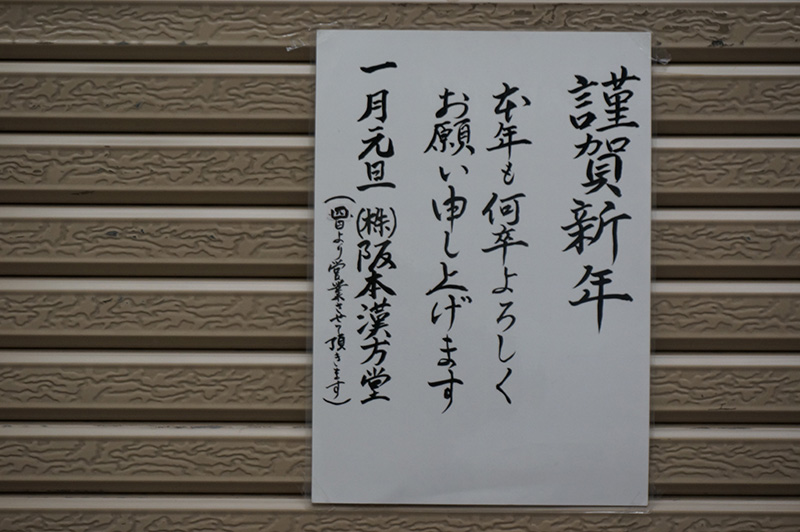 謹賀新年
本年も何卒よろしく
お願い申し上げます
一月元旦 ㈱阪本漢方堂
(四日より営業させて頂きます)